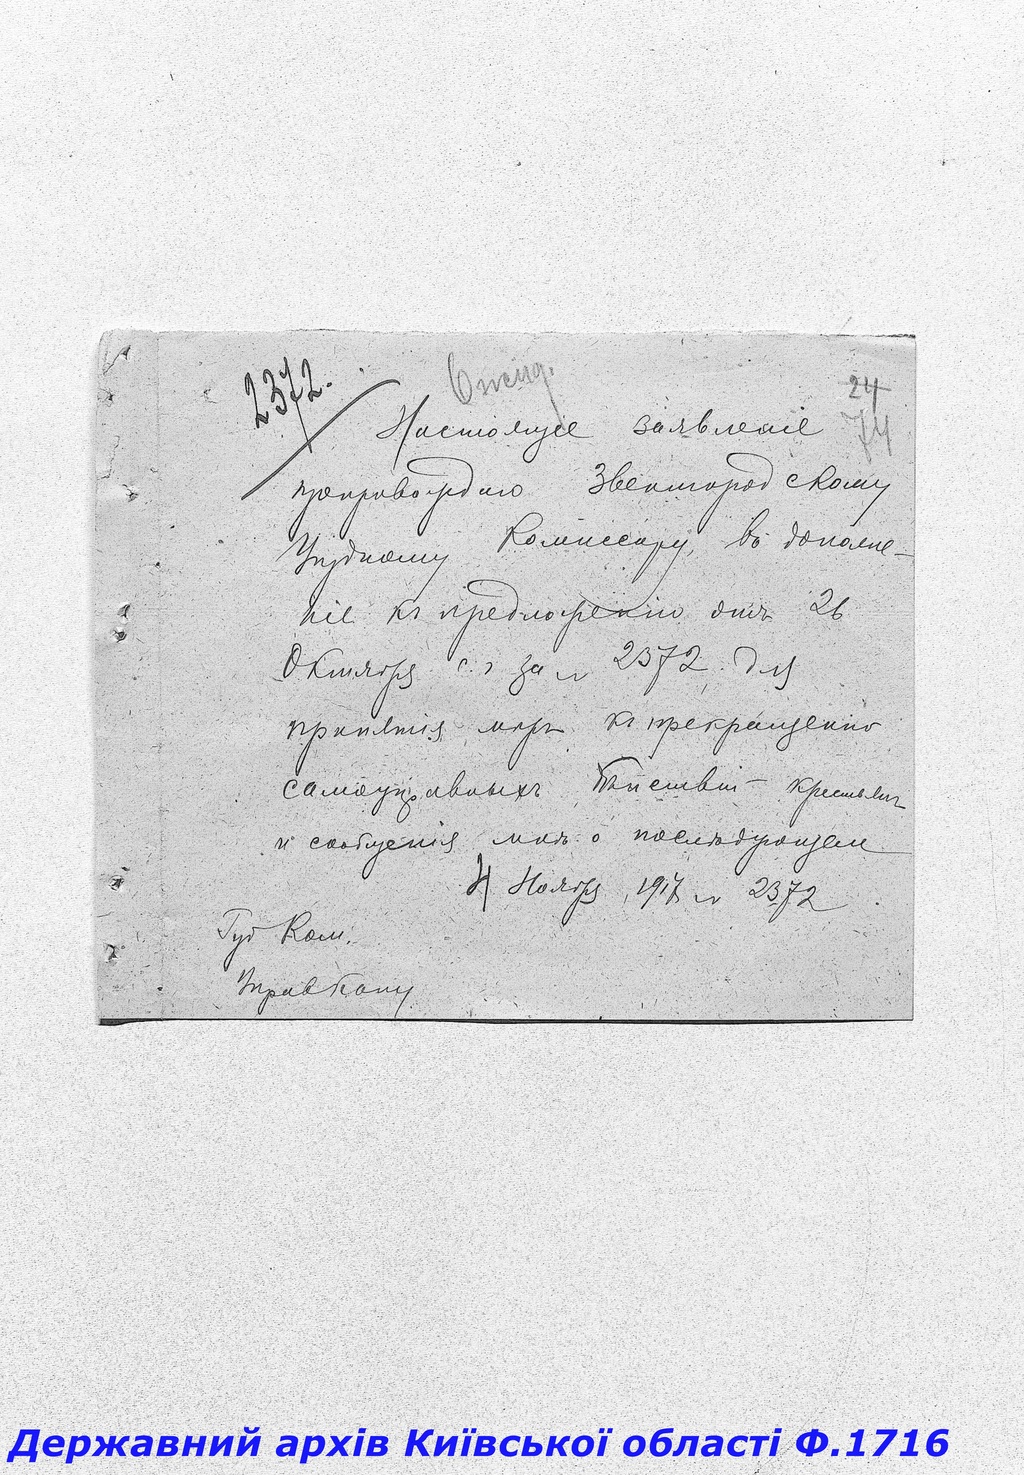 2372.
24
74
Настоящее заявленіе
препровождаю Звенигородскому
Уѣздному Комиссару, въ дополне-
ніе къ предложенію отъ 26
Октября с.г. за № 2372, для
принятія мѣръ къ прекращенію
самоуправныхъ дѣйствій крестьянъ
и сообщенія мнѣ о послѣдующем
4 Ноября 1917 № 2372
Губ Ком.
Державний архів Київської області Ф.1716